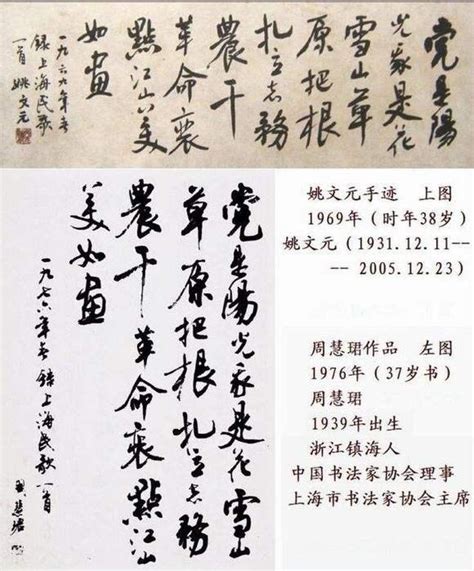 党是陽
光我是花
雪山草
原把根
扎立志務
農干
革命裝
點江山美
如畫
一九六九年春
錄上海民歌
一首 姚文元
党是陽光我是花雪山
草原把根扎立志務
農干革命裝點江山
美如畫
一九七六年春錄上海民歌一首
周慧珺
姚文元手迹 上图
1969年（时年38岁）
姚文元（1931.12.11--
-- 2005.12.23）
周慧珺作品 左图
1976年（37岁书）
周慧珺
1939年出生
浙江镇海人
中国书法家协会理事
上海市书法家协会主席